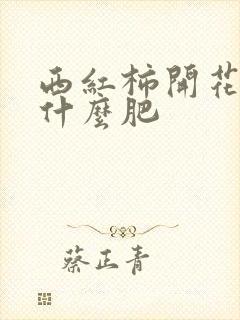 西紅柿開花
什麼肥
蔡正青